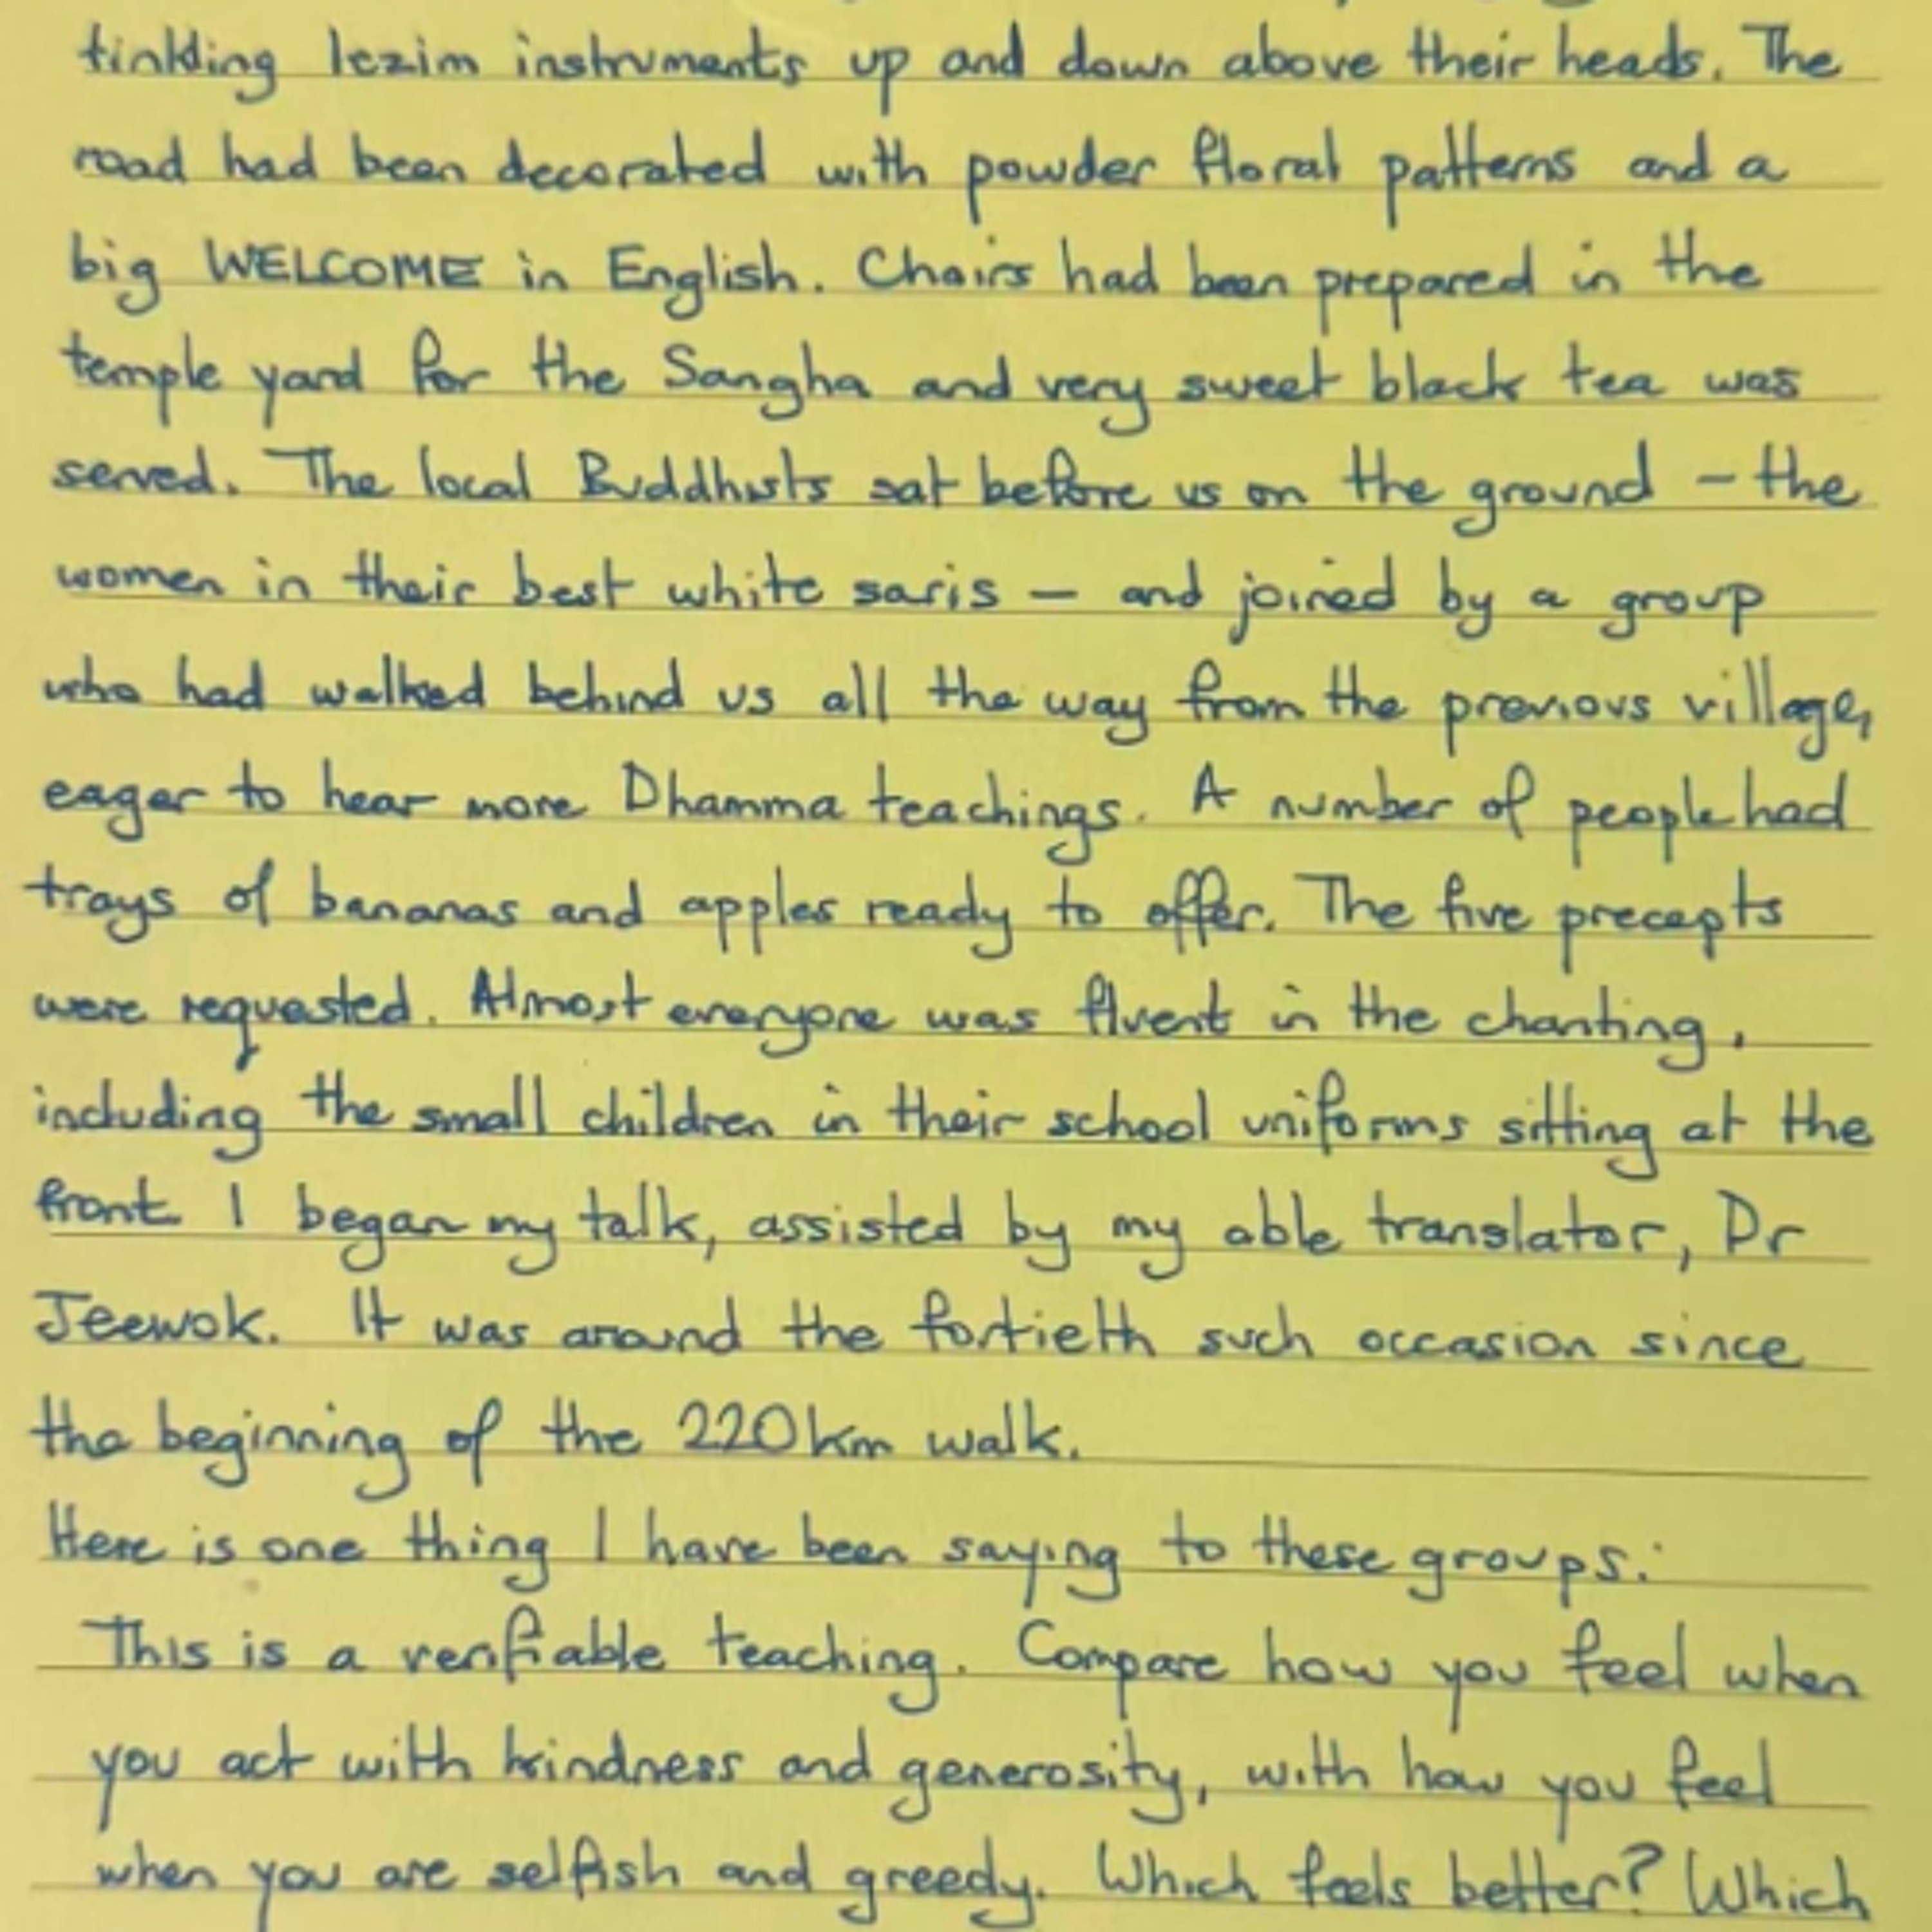 tinkling lezim instruments up and down above their heads. The
road had been decorated with powder floral patterns and a
big WELCOME in English. Chairs had been prepared in the
temple yard for the Sangha and very sweet black tea was
served. The local Buddhists sat before us on the ground – the
women in their best white saris – and joined by a group
who had walked behind us all the way from the previous village,
eager to hear more Dhamma teachings. A number of people had
trays of bananas and apples ready to offer. The five precepts
were requested. Almost everyone was fluent in the chanting,
including the small children in their school uniforms sitting at the
front. I began my talk, assisted by my able translator, Dr
Jeewok. It was around the fortieth such occasion since
the beginning of the 220km walk.
Here is one thing I have been saying to these groups:
This is a verifiable teaching. Compare how you feel when
you act with kindness and generosity, with how you feel
when you are selfish and greedy. Which feels better? Which